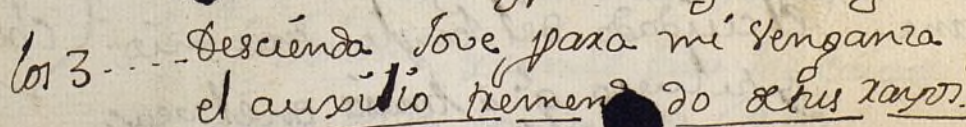 los 3..... Descienda Jove, para mi venganza
el auxilio tremendo de tus rayos.